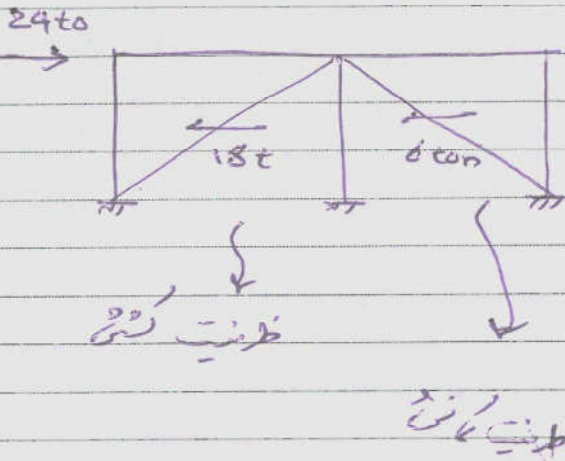 24to
18t 6 ton
ظرفیت کششی
ظرفیت